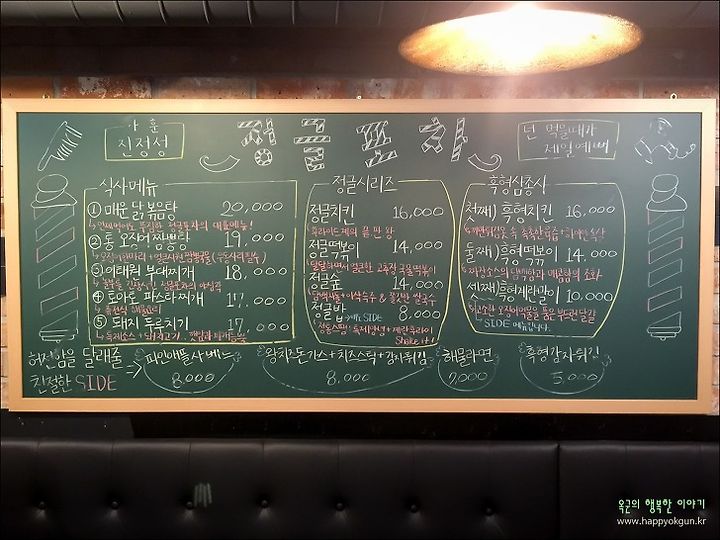 가훈
진정성
정글포차
넌 먹을때가
제일예뻐
식사메뉴
① 매운 닭볶음탕 20,000
② 통 오징어짬뽕탕 19,000
③ 이태원 부대찌개 18,000
④ 토마토 파스타찌개 17,000
⑤ 돼지 두루치기 17,000
정글시리즈
정글치킨 16,000
정글떡볶이 14,000
달달하면서 얼큰한 고추장 국물떡볶이
정글숲 14,000
정글바 8,000
Shake it!
흑형삼총사
첫째) 흑형치킨 16,000
둘째) 흑형떡볶이 14,000
짜장소스의 달콤함과 매콤함의 조화
셋째) 흑형계란말이 10,000
SIDE 메뉴입니다.
허전함을 달래줄
친절한 SIDE
파인애플샤베트
8,000
왕치즈돈가스+치즈스틱+감자튀김
8,000
해물라면
7,000
흑형감자튀김
5,000
옥군의 행복한 이야기
www.happyokgun.kr